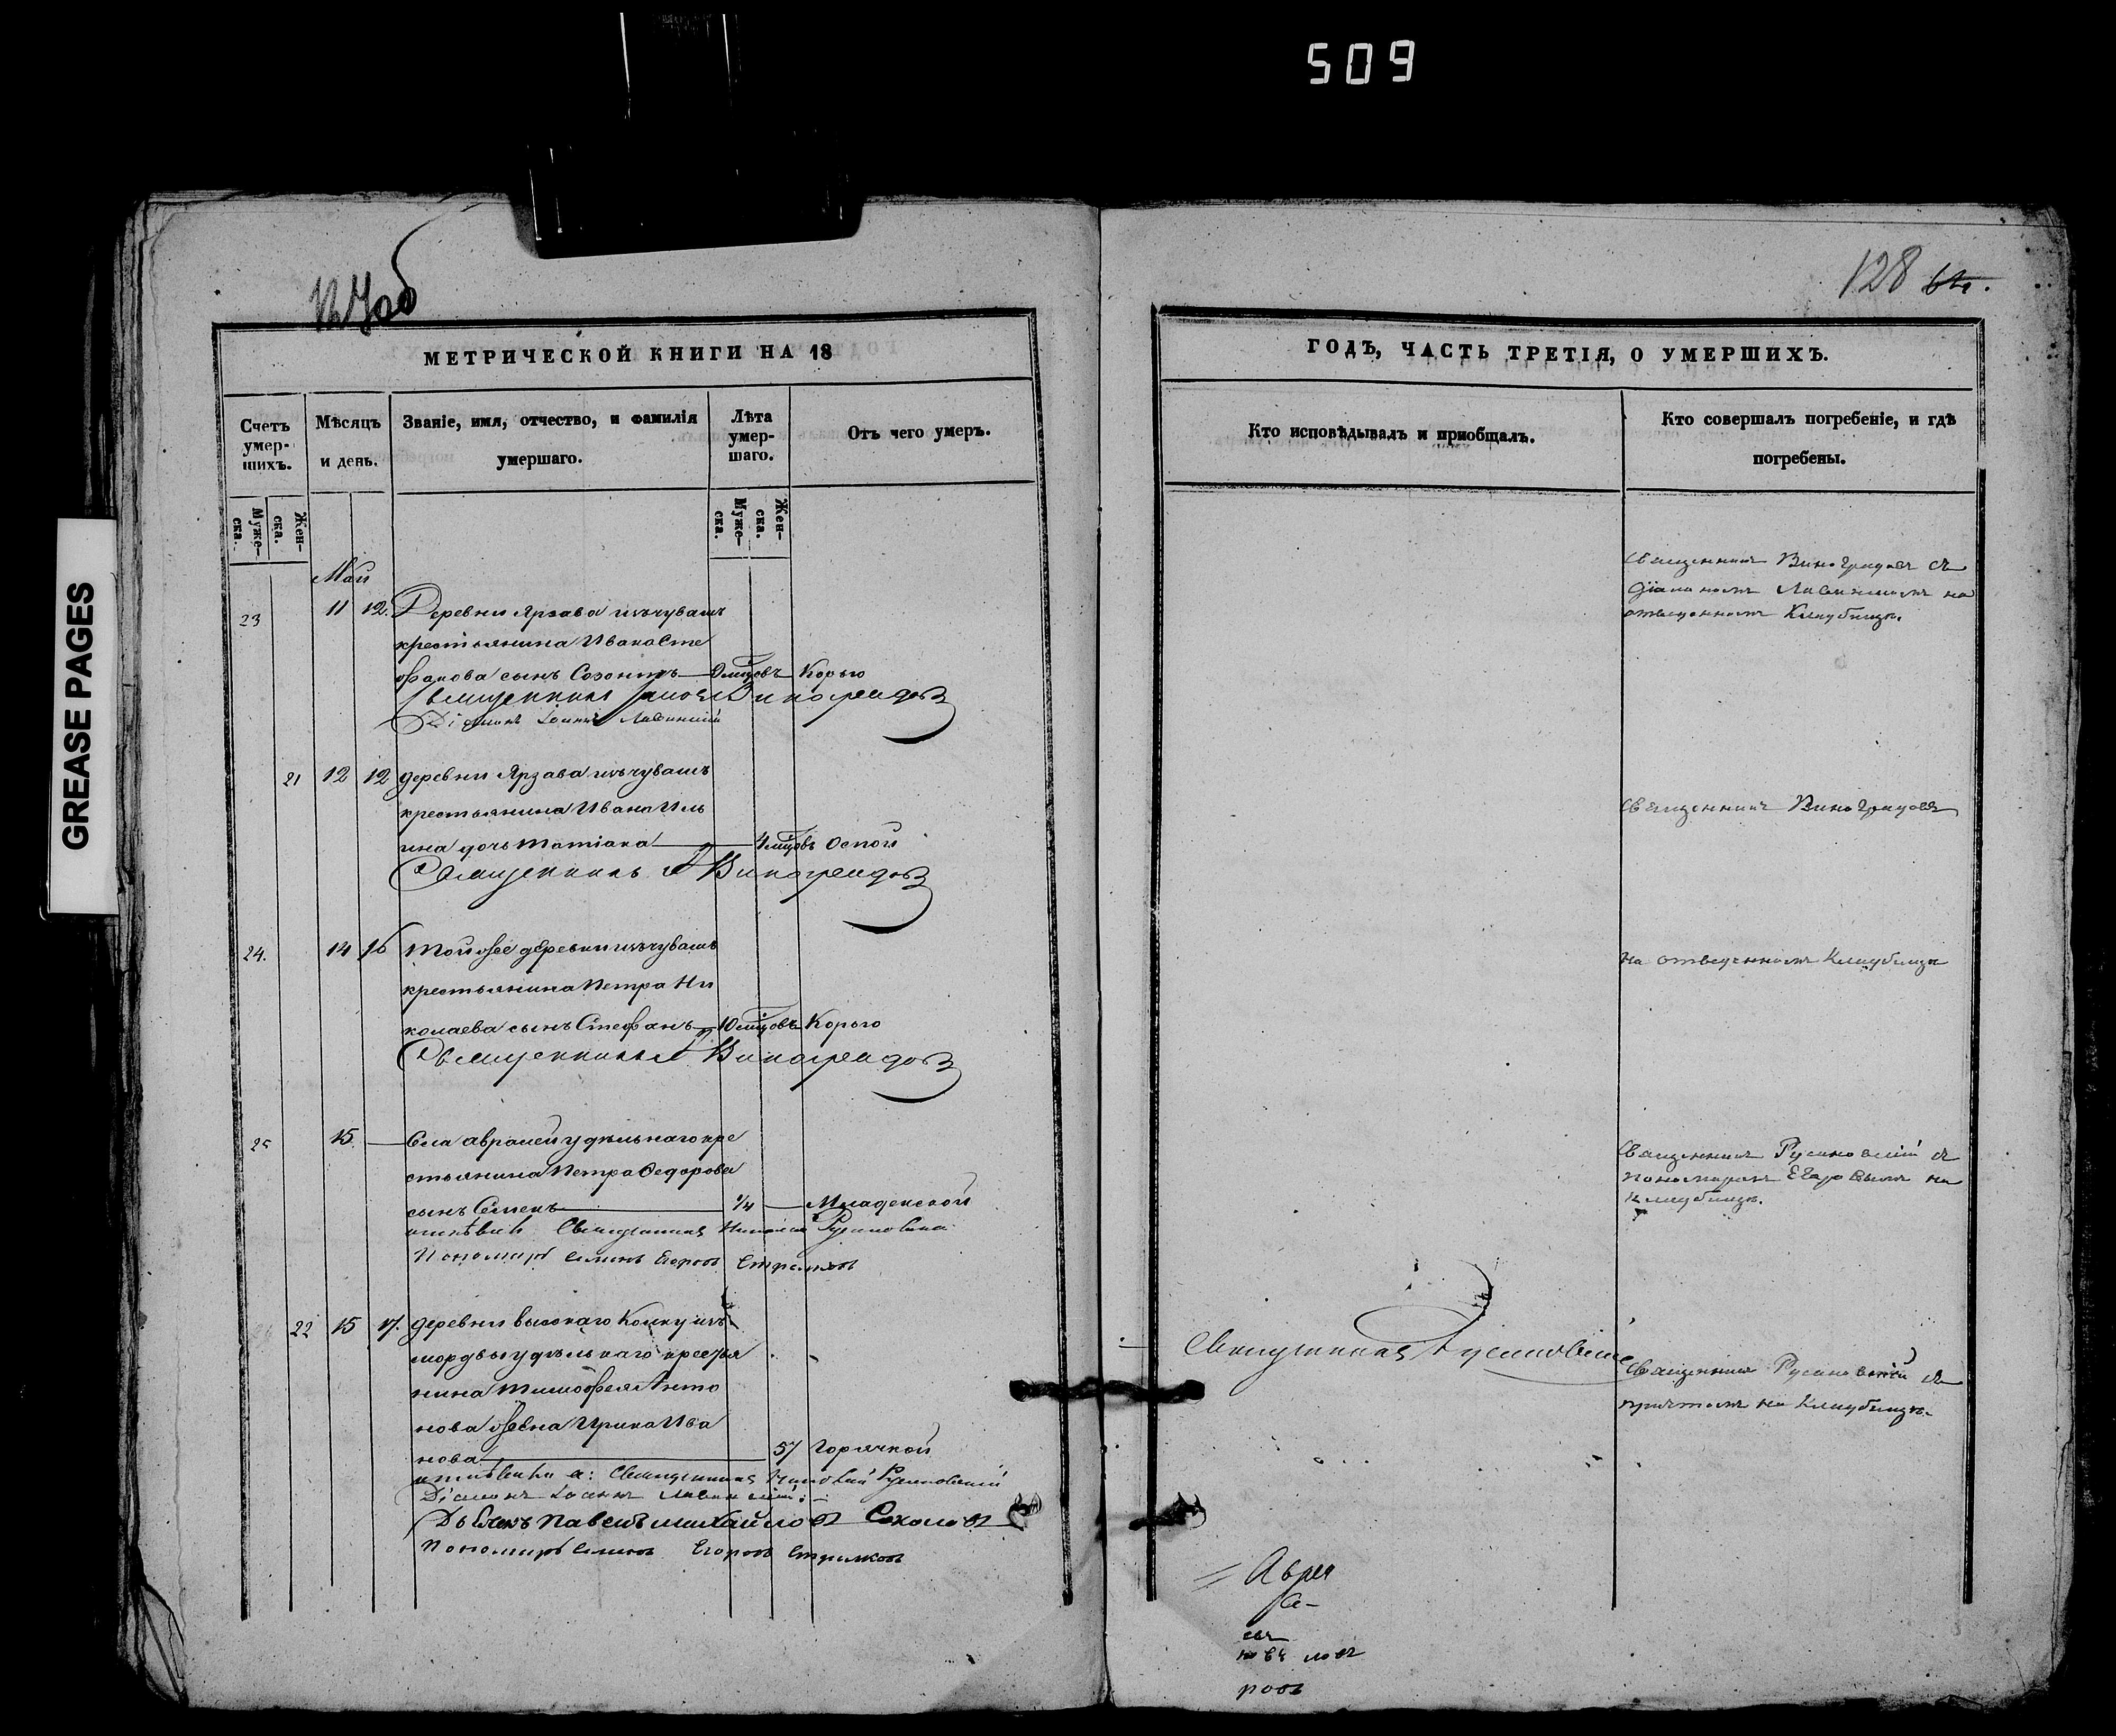 509
GREASE PAGES
128
МЕТРИЧЕСКОЙ КНИГИ НА 18
Счетъ умер-шихъ.
Мѣсяцъ и день.
Званіе, имя, отчество, и фамилія умершаго.
Лѣта умер-шаго.
Отъ чего умеръ.
Муже-ска.
Жен-ска.
Муже-ска.
Жен-ска.
Май
23 11 12. Деревни Ярзава изъ чувашъ
крестьянина Ивана Сте
фанова сынъ Созонтъ мцовъ Корью
Священникъ Виноградовъ
Діаконъ Іоаннъ
21 12 12 деревни Ярзава изъ чувашъ
крестьянина Ивана Иль
ина дочь Татіана 4 мцовъ Оспой
Священникъ Виноградовъ
24. 14 16 Той же деревни изъ чувашъ
крестьянина Петра Ни
колаева сынъ Стефанъ 10 мцовъ Корью
Священникъ Виноградовъ
25 15 Села аврамей удѣльнаго кре
стьянина Петра Федорова
сынъ Семенъ 1/4 Младенской
Священникъ Николай Русиновскій
Пономарь Семенъ Егоровъ Стрелковъ
22 15 17. деревни высокаго Колку изъ
мордвы удѣльнаго крестья
нина Тимофея Анто
нова жена Ирина Ива
нова 57 горячкой
Священникъ Николай Русиновскій
Діаконъ Іоаннъ
Дьячекъ Павелъ Михайловъ Соколовъ
Пономарь Семенъ Егоровъ Стрелковъ
ГОДЪ, ЧАСТЬ ТРЕТІЯ, О УМЕРШИХЪ.
Кто исповѣдывалъ и пріобщалъ.
Кто совершалъ погребеніе, и гдѣ погребены.
Священникъ Виноградовъ съ
Діакономъ на
отведенномъ Кладбищѣ.
Священникъ Виноградовъ
на отведенномъ Кладбищѣ
Священникъ Русиновскій съ
пономаремъ Егоровымъ на
кладбищѣ.
Священникъ Русиновскій
Священникъ Русиновскій съ
причтомъ на Кладбищѣ.